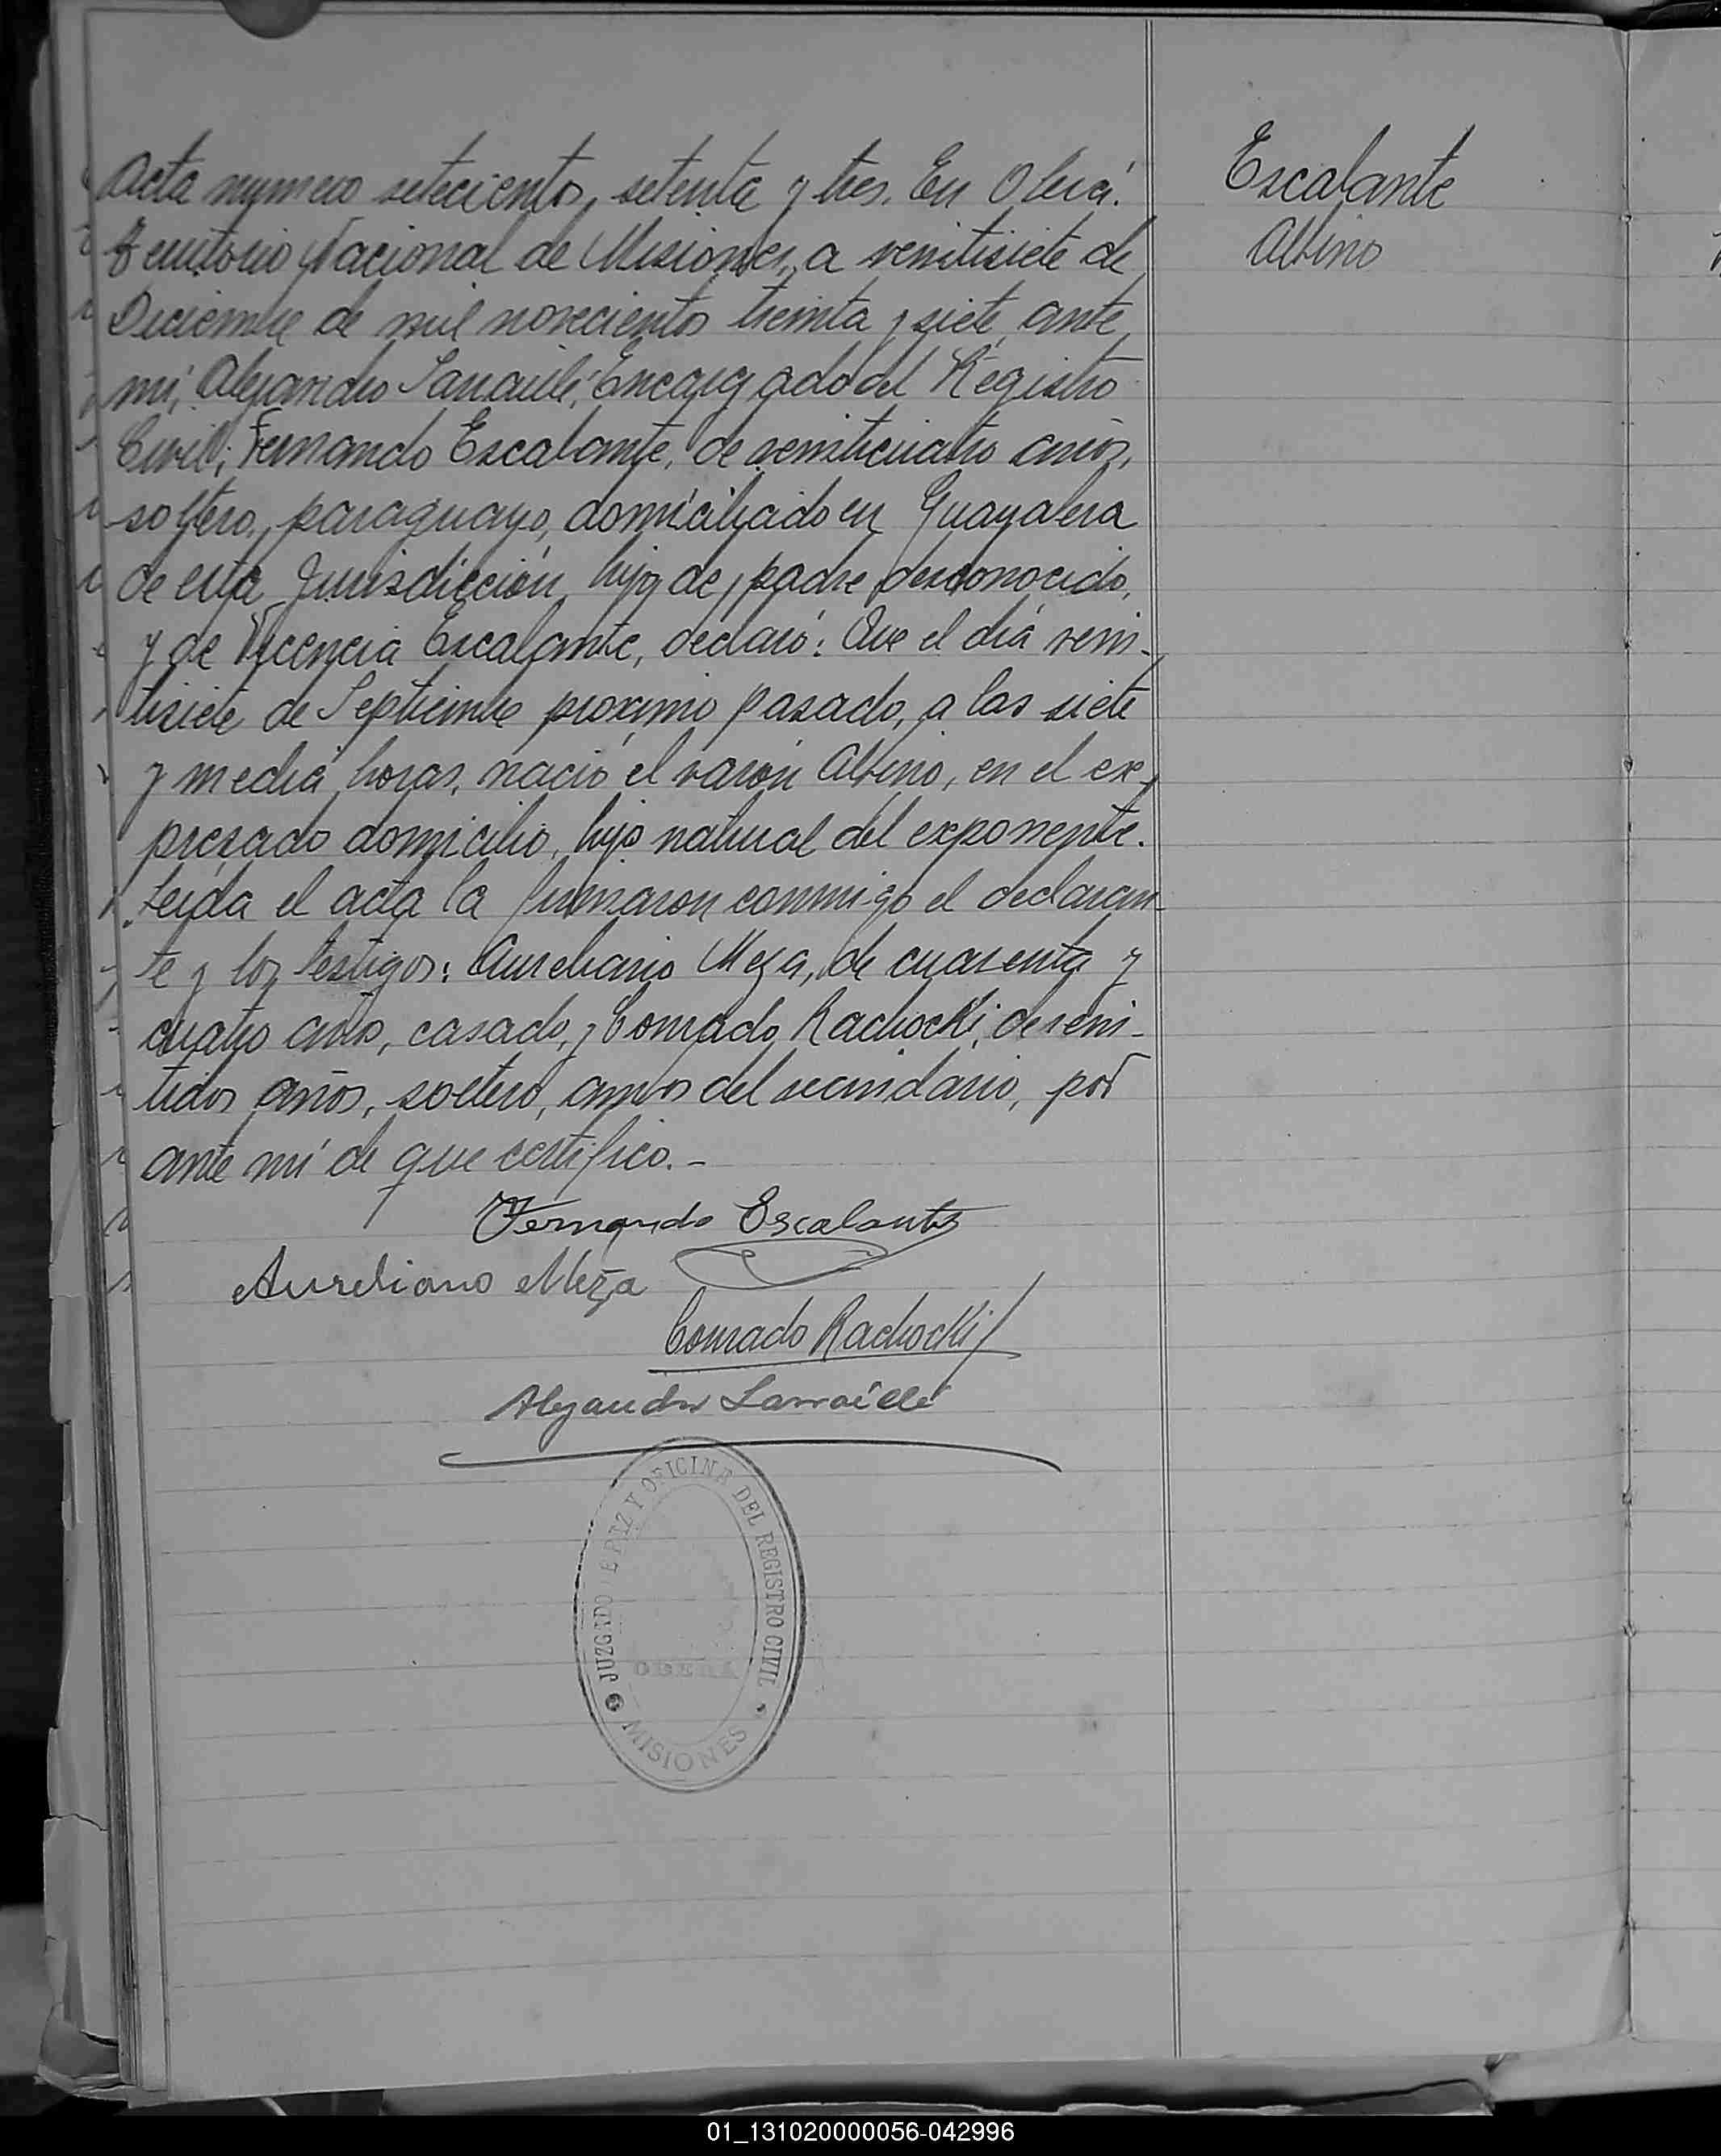 Acta numero setecientos, setenta y tres. En Oberá.
Territorio Nacional de Misiones, a veintisiete de
Diciembre de mil novecientos treinta y siete, ante
mi, Alejandro Larraillé, Encargado del Registro
Civil; Fernando Escalante, de veinticuatro años,
soltero, paraguayo, domiciliado en Guayabera
de esta Jurisdicción, hijo de padre desconocido,
y de Vicencia Escalante, declaró: Que el día vein-
tisiete de Septiembre próximo pasado, a las siete
y media horas, nació el varón Albino, en el ex-
presado domicilio, hijo natural del exponente.
Leída el acta la firmaron conmigo el declaran-
te y los testigos: Aureliano Meza, de cuarenta y
cuatro años, casado, y Conrado Rachocki, de vein-
tidos años, soltero, amos del vecindario, por
ante mí de que certifico.-
Fernando Escalante
Aureliano Meza
Conrado Rachocki
Alejandro Larraillé
JUZGADO DE PAZ Y OFICINA DEL REGISTRO CIVIL
OBERÁ
MISIONES
Escalante
Albino
01_131020000056-042996